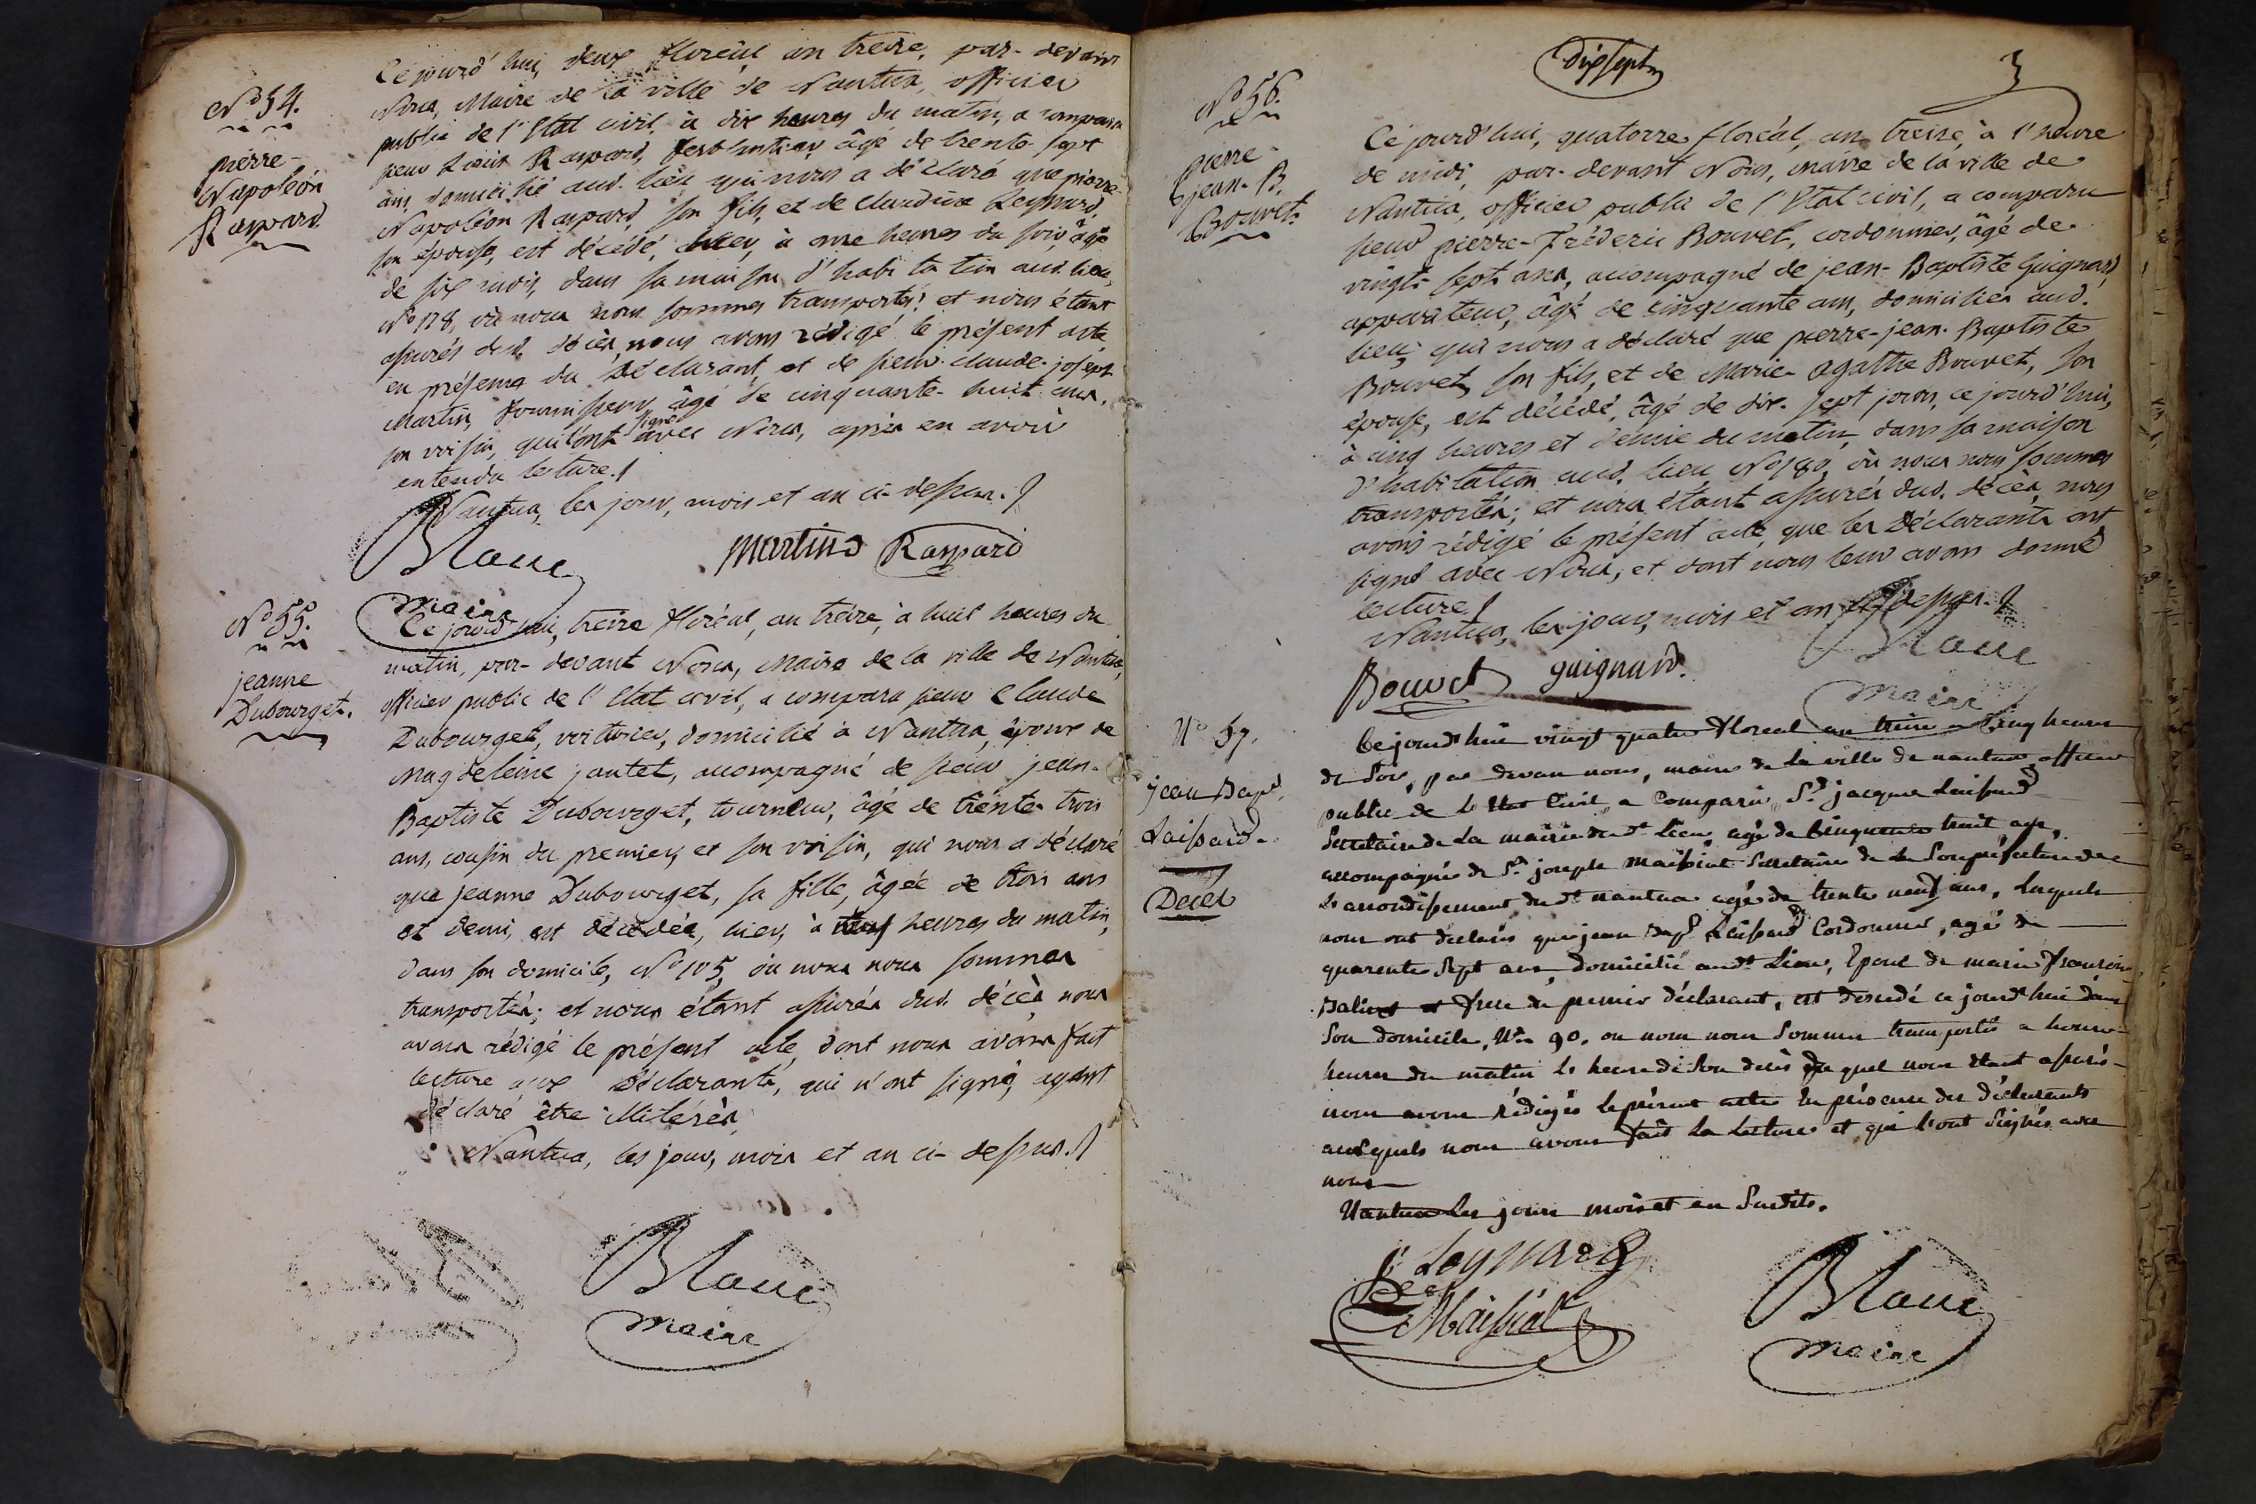 N.° 54.
pierre-
Napoléon
Raspard
Ce jourd'hui, deux floréal an treize, par-devant
Nous, Maire de la ville de Nantua, officier
public de l'Etat civil, à dix heures du matin, a comparu
sieur Louis Raspard, ferblantier, âgé de trente-sept
ans, domicilié aud. lieu qui nous a déclaré que pierre-
Napoléon Raspard, son fils, et de Claudine Reynard,
son épouse, est décédé, hier, à onze heures du soir âgé
de six mois, dans sa maison d'habitation aud. lieu,
N.° 178, où nous nous sommes transportés; et nous étant
assurés dud. décès, nous avons rédigé le présent acte,
en présence du Déclarant et de sieur claude-joseph
Martin, fournisseur, âgé de cinquante-huit ans,
son voisin, qui l'ont signé avec Nous, après en avoir
entendu lecture./
Nantua, les jour, mois et an ci-dessus./
Blanc
maire
Martin Raspard
N.° 55.
jeanne
Dubourget.
Ce jourd'hui, treize floréal, an treize, à huit heures du
matin, par-devant Nous, Maire de la ville de Nantua,
officier public de l'Etat civil, a comparu sieur Claude
Dubourget, voiturier, domicilié à Nantua, époux de
Magdeleine jantet, accompagné de sieur jean-
Baptiste Dubourget, tourneur, âgé de trente-trois
ans, cousin du premier, et son voisin, qui nous a déclaré
que jeanne Dubourget, sa fille, âgée de trois ans
et demi, est décédée, hier, à neuf heures du matin,
dans son domicile, N.° 105, où nous nous sommes
transportés; et nous étant assurés dud. décès, nous
avons rédigé le présent acte, dont nous avons fait
lecture aux Déclarants, qui n'ont signé, ayant
déclaré être illitérés,
Nantua, les jour, mois et an ci-dessus./
Blanc
maire
dix sept
3
N.° 56.
pierre-
jean-B.
Bouvet.
Ce jourd'hui, quatorze floréal, an treize, à l'heure
de midi, par-devant Nous, maire de la ville de
Nantua, officier public de l'Etat civil, a comparu
sieur pierre-Fréderic Bouvet, cordonnier, âgé de
vingt-sept ans, accompagné de jean-Baptiste Guignard
appariteur, âgé de cinquante ans, domiciliés aud.
lieu; qui nous a déclaré que pierre-jean-Baptiste
Bouvet, son fils, et de Marie-Agathe Bouvet, son
épouse, est décédé, âgé de dix-sept jours, ce jourd'hui,
à cinq heures et demie du matin, dans sa maison
d'habitation aud. lieu, N.° 180, où nous nous sommes
transportés; et nous étant assurés dud. décès, nous
avons rédigé le présent acte, que les Déclarants ont
signé avec Nous, et dont nous leur avons donné
lecture./
Nantua, les jour, mois et an ci-dessus./
Bouvet guignard.
Blanc
maire
N° 57.
jean Bapt.
Laissard.
Décès
Ce jourd'hui vingt quatre floreal an treize a Cinq heures
de soir, par devan nous, maire de la ville de nantua officier
public de l'Etat Civil, a Comparu, S.r jacque Laissard
Secretaire de La mairie dud.t Lieu, agé de Cinquante huit ans,
accompagné de S.r joseph maissiat Secretaire de la Souspréfecture de
L'arrondissement dud.t nantua agé de trente neuf ans, Lesquels
nous ont déclarés que jean Bapt. Laissard Cordonnier, agé de
quarente Sept ans, domicilié aud.t Lieu, Epoux de marie françoise
frere du premier déclarant, est décedé ce jourd'hui dans
Son domicile, N° 90. ou nous nous Sommes transportés a honze
heures du matin L'heure de Son décès duquel nous étant assurés
nous avons rédigés le présent acte En présence des déclarants
auxquels nous avons fait La Lecture et qui L'ont Signés avec
nous
Nantua Les jours mois et an Susdits.
Maissiat
Blanc
maire